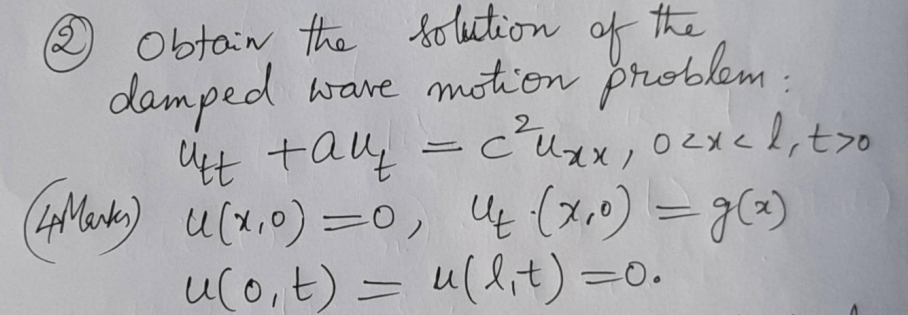 ② Obtain the solution of the
damped wave motion problem:
u_tt + au_t = c²u_xx, 0<x<l, t>0
(4Marks) u(x,0)=0, u_t(x,0)=g(x)
u(0,t) = u(l,t)=0.